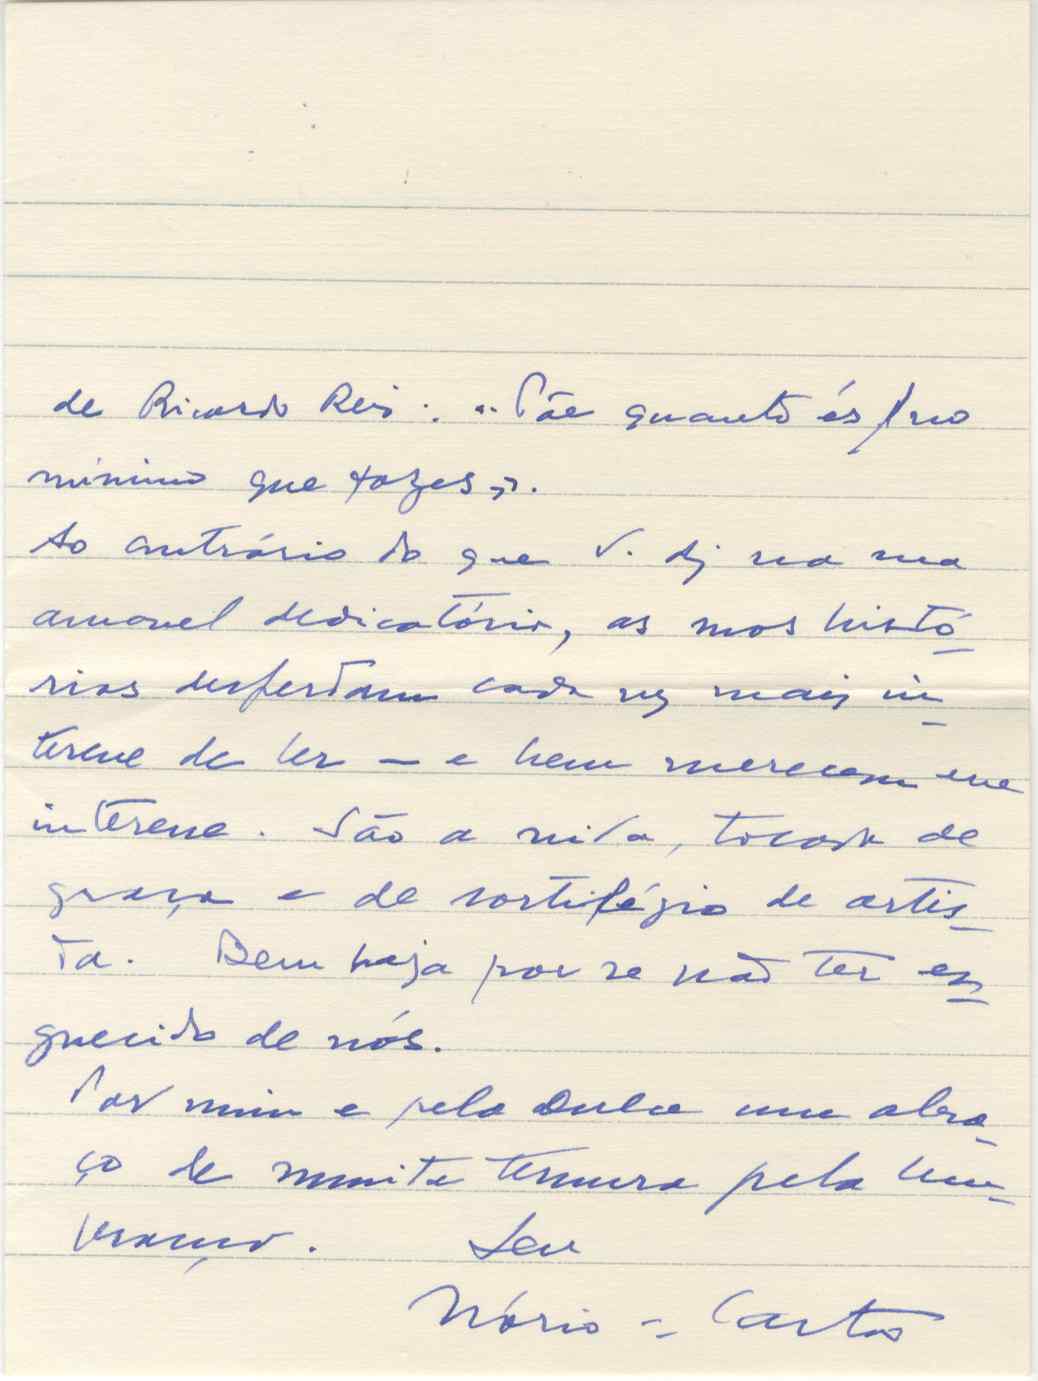 de Ricardo Reis: "Põe quanto és / no
mínimo que fazes".
Ao contrário do que V. diz na sua
amavel dedicatória, as suas histó-
rias despertam cada vez mais in-
teresse de ler – e bem merecem esse
interesse. São a vida, tocada de
graça e de sortilégio de artis-
ta. Bem haja por se não ter es-
quecido de nós.
Por mim e pela Dulce um abra-
ço de muita ternura pela lem-
brança. Seu
Mário-